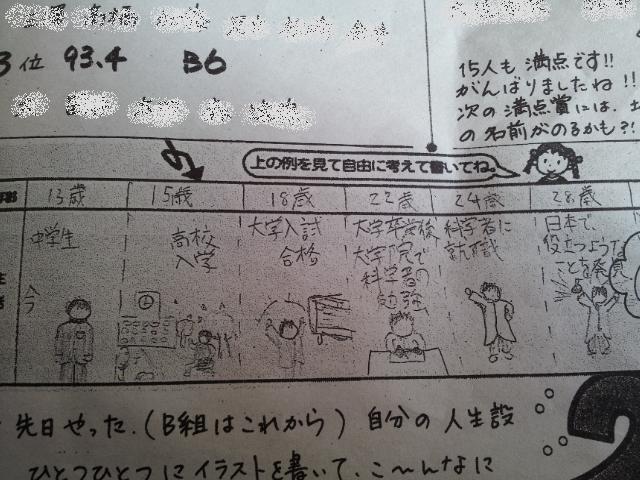 3位 93.4 B6
15人も満点です!!
がんばりましたね!!
次の満点賞には、
の名前がのるかも?!
上の例を見て自由に考えて書いてね。
13歳
15歳
18歳
22歳
24歳
28歳
中学生
高校
入学
大学入試
合格
大学卒業後
大学院で
科学者の
勉強
科学者に
就職
日本で、
役立つような
ことを発見
今
先日やった.(B組はこれから) 自分の人生設
ひとつひとつにイラストを書いて、こ〜んなに